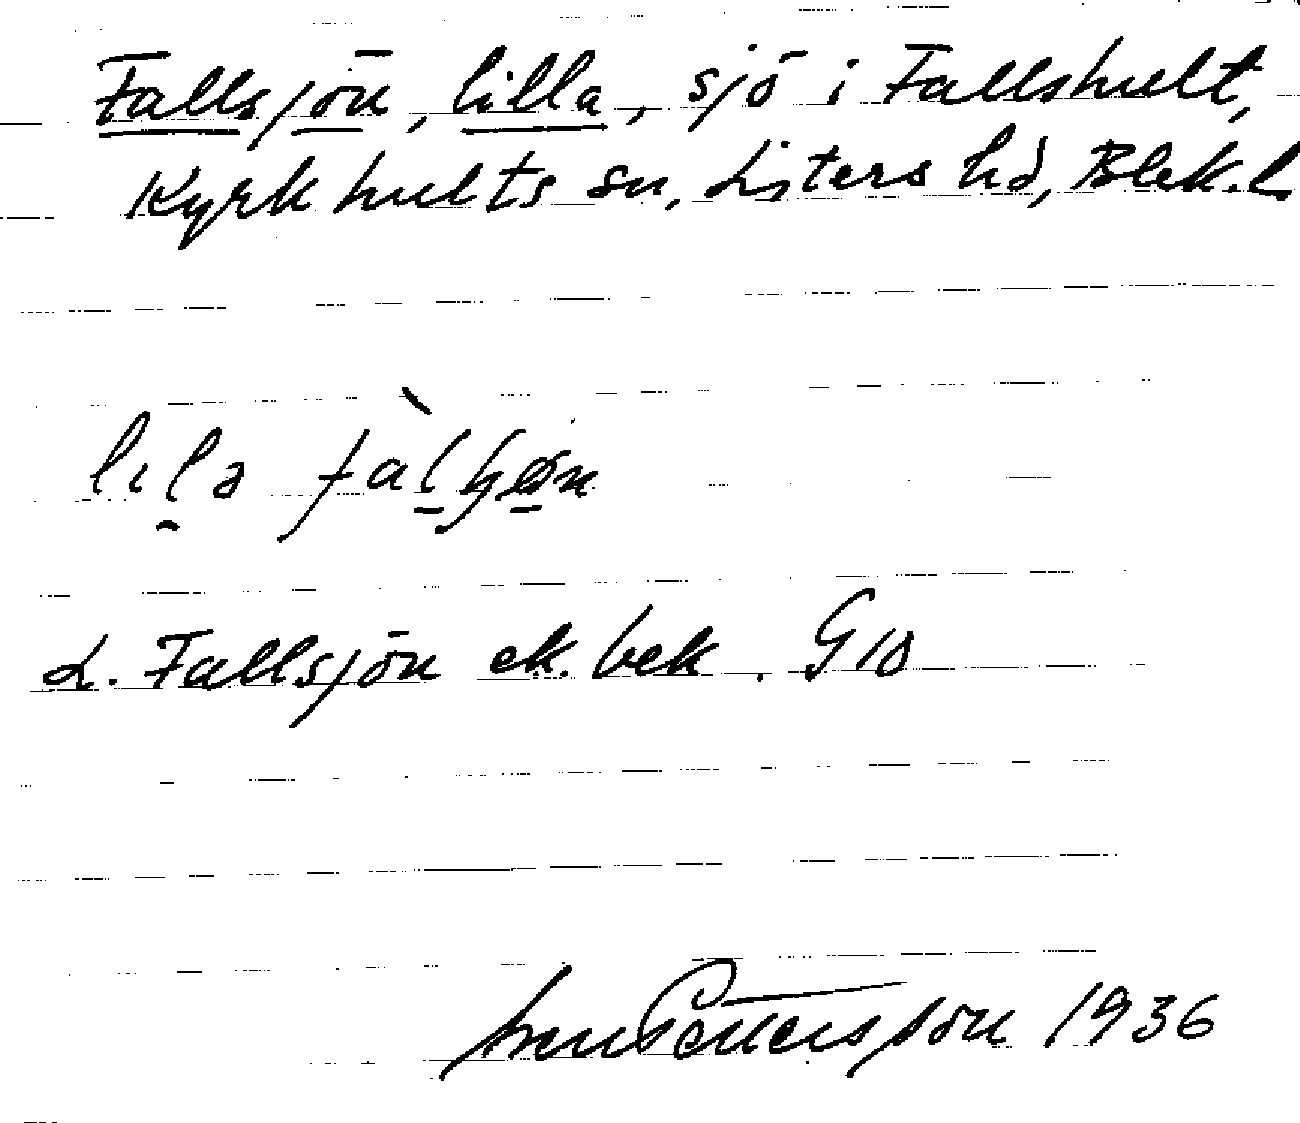 Fallsjön, lilla, sjö i Fallshult,
Kyrkhults sn, Listers hd, Blek. l.
lila
L. Fallsjön ek. bek. G10
Sven Pettersson 1936